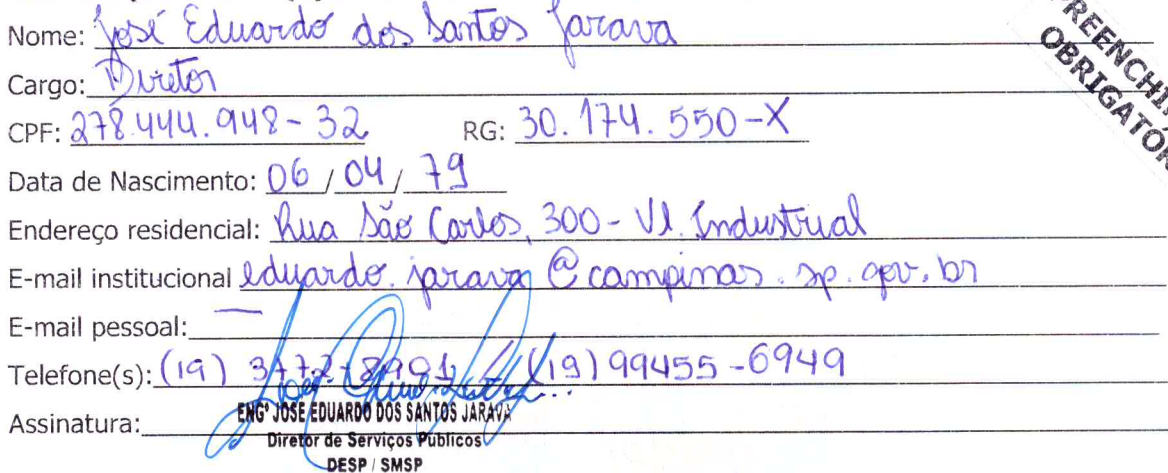 Nome: José Eduardo dos Santos Jarava
PREENCHI
OBRIGATÓR
Cargo: Diretor
CPF: 278.444.948-32 RG: 30.174.550-X
Data de Nascimento: 06/04/79
Endereço residencial: Rua São Carlos, 300 - Vl. Industrial
E-mail institucional eduardo.jarava@campinas.sp.gov.br
E-mail pessoal: —
Telefone(s): (19) 3772-8991 (19) 99455-6949
Assinatura:
ENGº JOSE EDUARDO DOS SANTOS JARAVA
Diretor de Serviços Públicos
DESP / SMSP